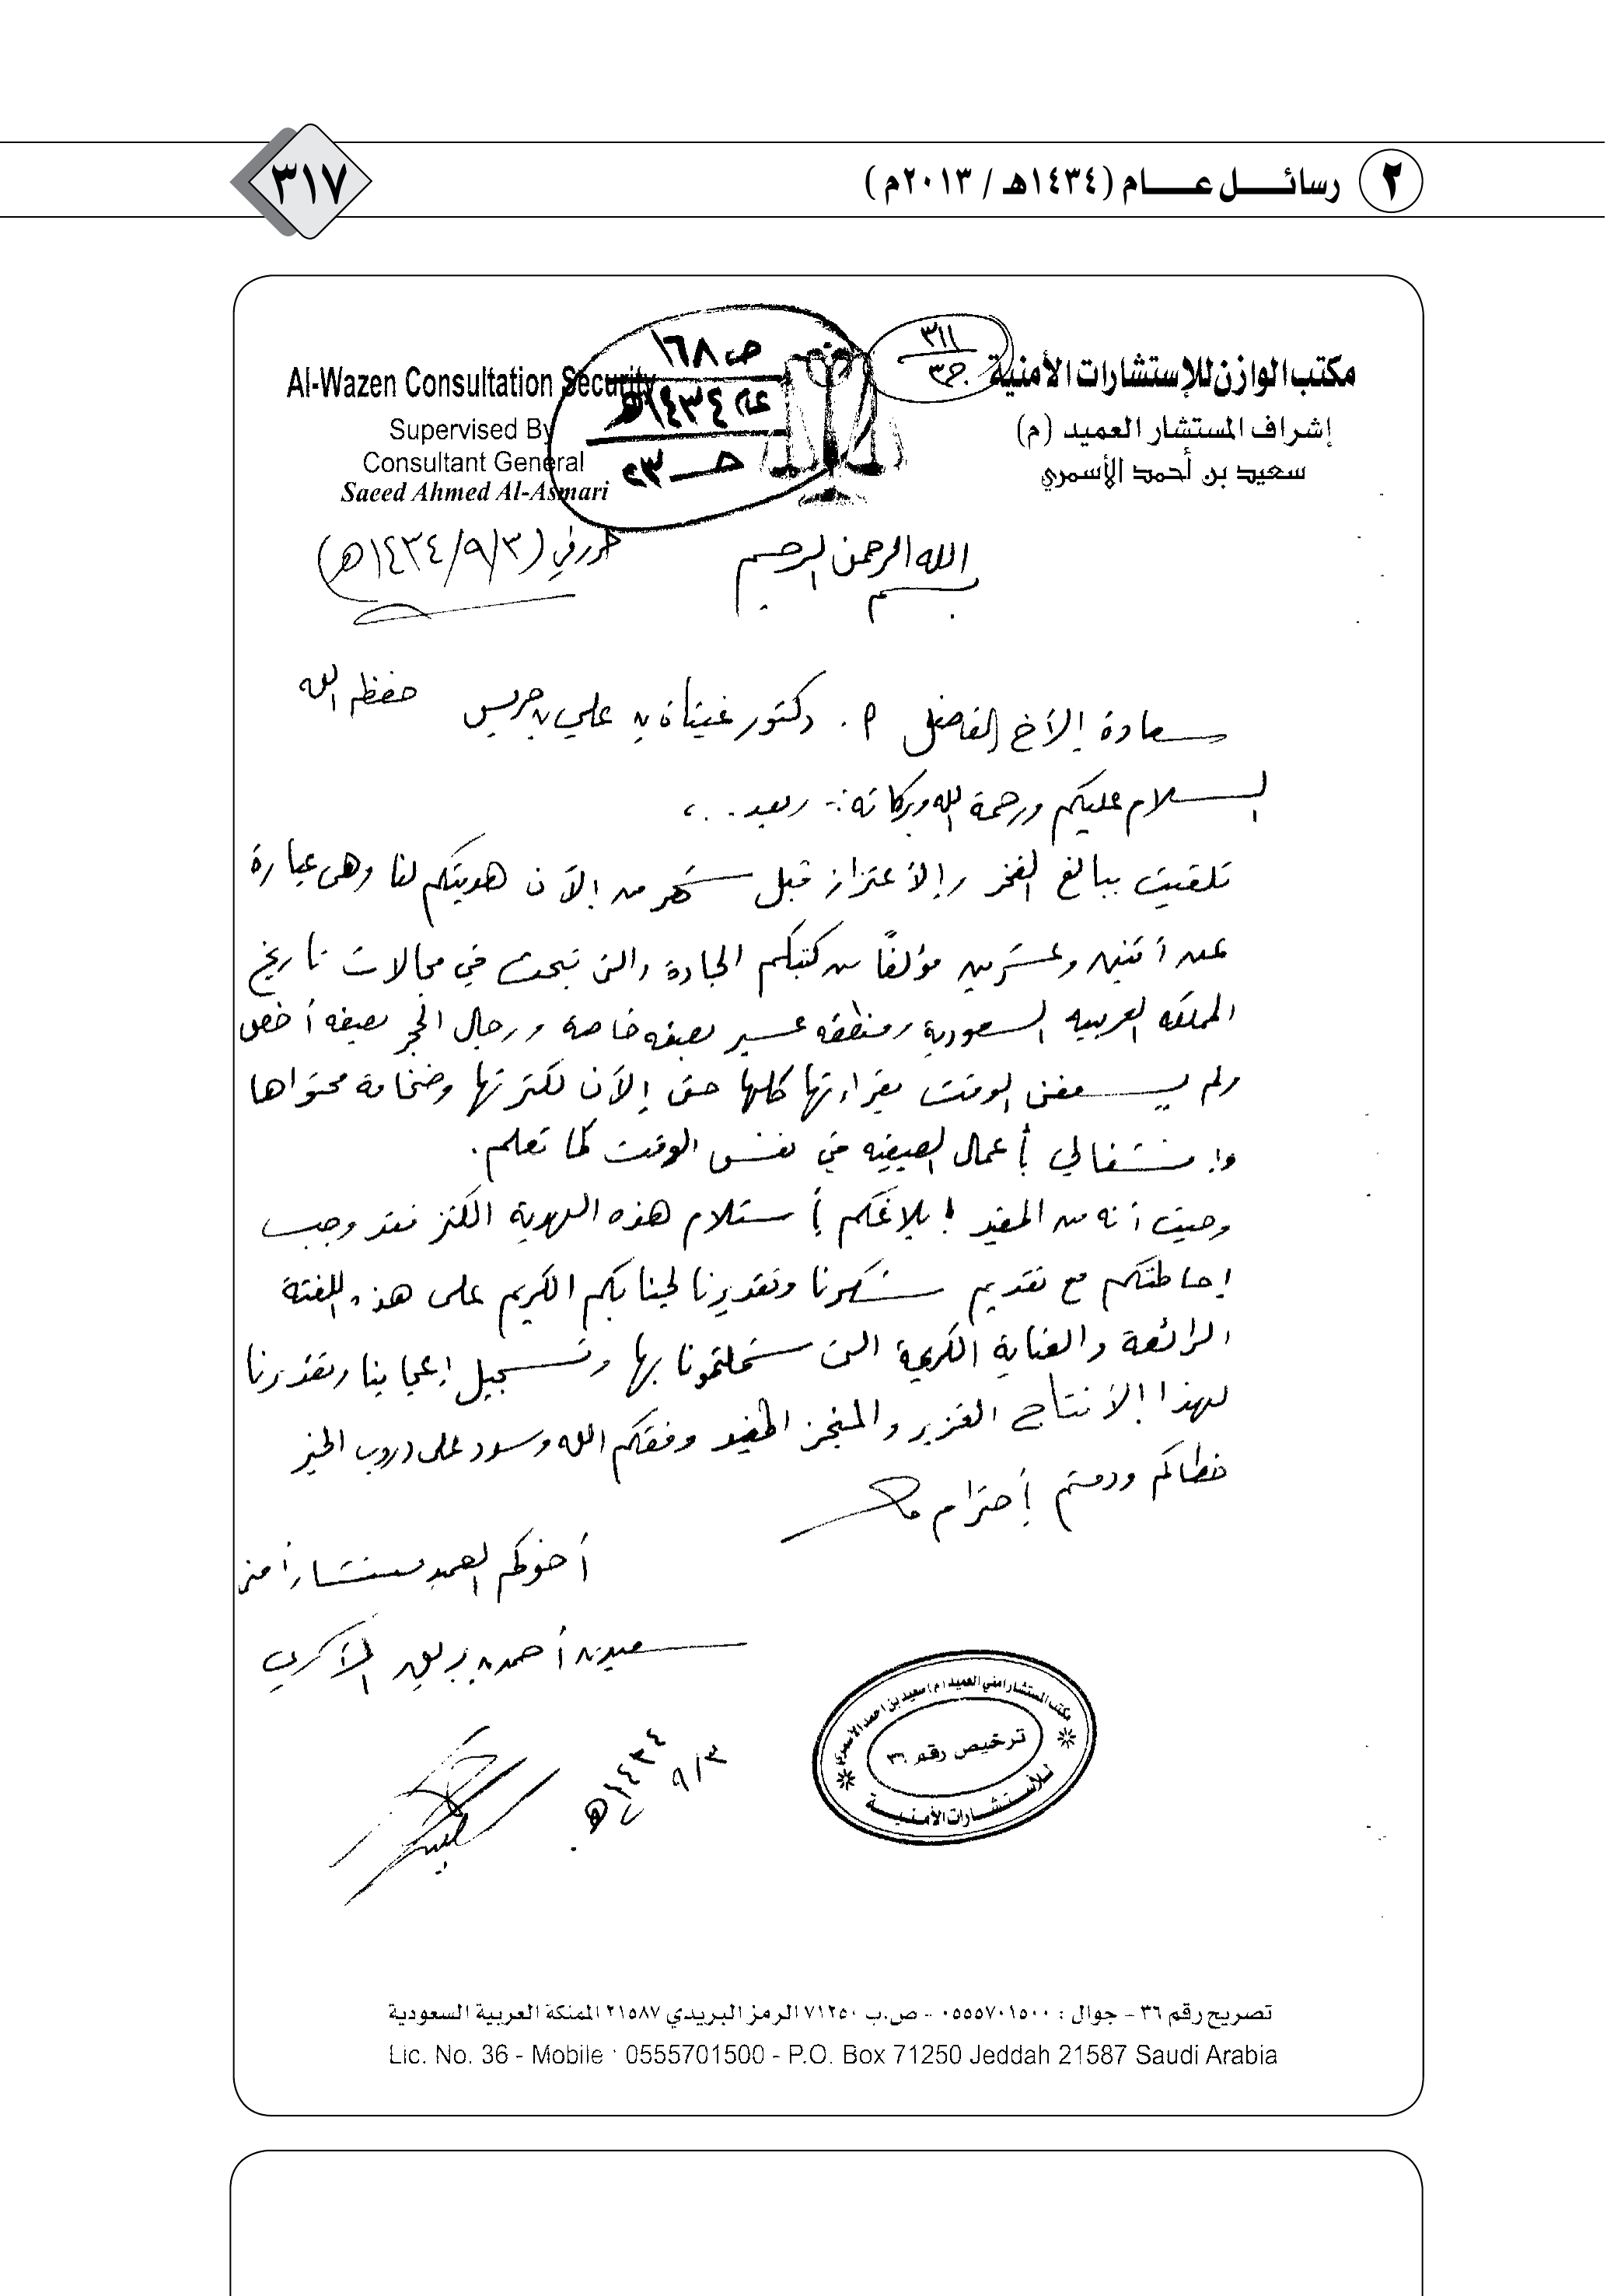 ٢ رسائل عام (١٤٣٤هـ / ٢٠١٣م)
٣١٧
مكتب الوازن للإستشارات الأمنية
إشراف المستشار العميد (م)
سعيد بن أحمد الأسمري
٣١١
ج٣
ص ١٦٨
عام ١٤٣٤هـ
Al-Wazen Consultation Security
Supervised By
Consultant General
Saeed Ahmed Al-Asmari
بسم الله الرحمن الرحيم
حرر في (١٤٣٤/٩/٣هـ)
سعادة الأخ الفاضل أ. دكتور غيثان بن علي بن جريس حفظه الله
السلام عليكم ورحمة الله وبركاته :- وبعد ..،
تلقيت ببالغ الفخر والأعتزاز قبل شهر من الآن هديتكم لنا وهي عبارة
عن أثنين وعشرين مؤلفاً من كتبكم الجادة والتي تبحث في مجالات تاريخ
المملكه العربيه السعودية ومنطقه عسير بصفه خاصة ورجال الحجر بصفه أخص
ولم يسعفني الوقت بقراءتها كلها حتى الآن لكثرتها وضخامة محتواها
وانشغالي بأعمال الصيفيه في نفس الوقت كما تعلم.
وحيث أنه من المفيد إبلاغكم بأستلام هذه الهدية الكنز فقد وجب
إحاطتكم مع تقديم شكرنا وتقديرنا لجنابكم الكريم على هذه اللفتة
الرائعة والعناية الكريمة التي شملتمونا بها وتسجيل إعجابنا وتقديرنا
لهذا الأنتاج الغزير والمنجز المفيد وفقكم الله وسدد على دروب الخير
خطاكم ودمتم بأحترام
أخوكم العميد مستشار أمني
سعيد بن أحمد بن الأسمري
٩/٣
١٤٣٤هـ
مكتب المستشار امني العميد (م) سعيد بن احمد الأسمري
ترخيص رقم ٣٦
للأستشارات الأمنية
تصريح رقم ٣٦ - جوال : ٠٥٥٥٧٠١٥٠٠ - ص.ب ٧١٢٥٠ الرمز البريدي ٢١٥٨٧ المملكة العربية السعودية
Lic. No. 36 - Mobile : 0555701500 - P.O. Box 71250 Jeddah 21587 Saudi Arabia